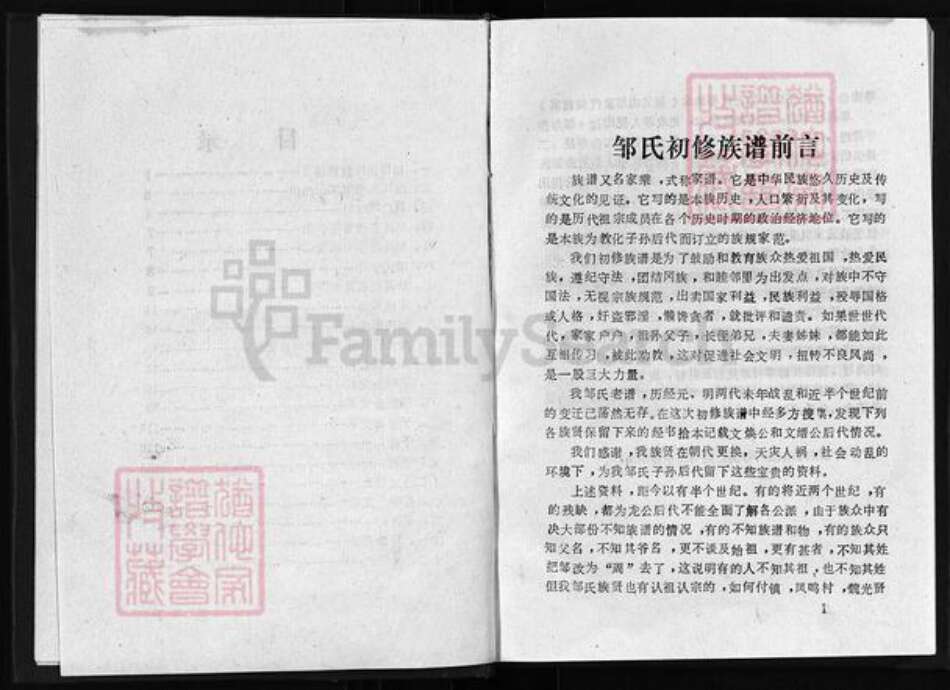 邹氏初修族谱前言
族谱又名家乘,式称家谱。它是中华民族悠久历史及传
统文化的见证。它写的是本族历史,人口繁衍及其变化,写
的是历代祖宗成员在各个历史时期的政治经济地位。它写的
是本族为教化子孙后代而订立的族规家范。
我们初修族谱是为了鼓励和教育族众热爱祖国,热爱民
族,遵纪守法,团结同族,和睦邻里为出发点,对族中不守
国法,无视宗族规范,出卖国家利益,民族利益,投辱国格
或人格,奸盗邪淫,懒馋贪者,就批评和谴责。如果世世代
代,家家户户,祖孙父子,长侄弟兄,夫妻姊妹,都能如此
互相传习,彼此劝教,这对促进社会文明,扭转不良风尚,
是一股巨大力量。
我邹氏老谱,历经元、明两代末年战乱和近半个世纪前
的变迁已荡然无存。在这次初修族谱中经多方搜集,发现下列
各族贤保留下来的经书抬本记载文焕公和文缙公后代情况。
我们感谢,我族贤在朝代更换,天灾人祸,社会动乱的
环境下,为我邹氏子孙后代留下这些宝贵的资料。
上述资料,距今以有半个世纪。有的将近两个世纪,有
的残缺,都为龙公后代不能全面了解各公派,由于族众中有
决大部份不知族谱的情况,有的不知族谱和物,有的族众只
知父名,不知其爷名,更不谈及始祖,更有甚者,不知其姓
把邹改为“周”去了,这说明有的人不知其祖,也不知其姓
但我邹氏族贤也有认祖认宗的,如何付镇,凤鸣村,魏光贤
1
目录
猶他家
譜學會
收藏
猶他家
譜學會
收藏
FamilyS